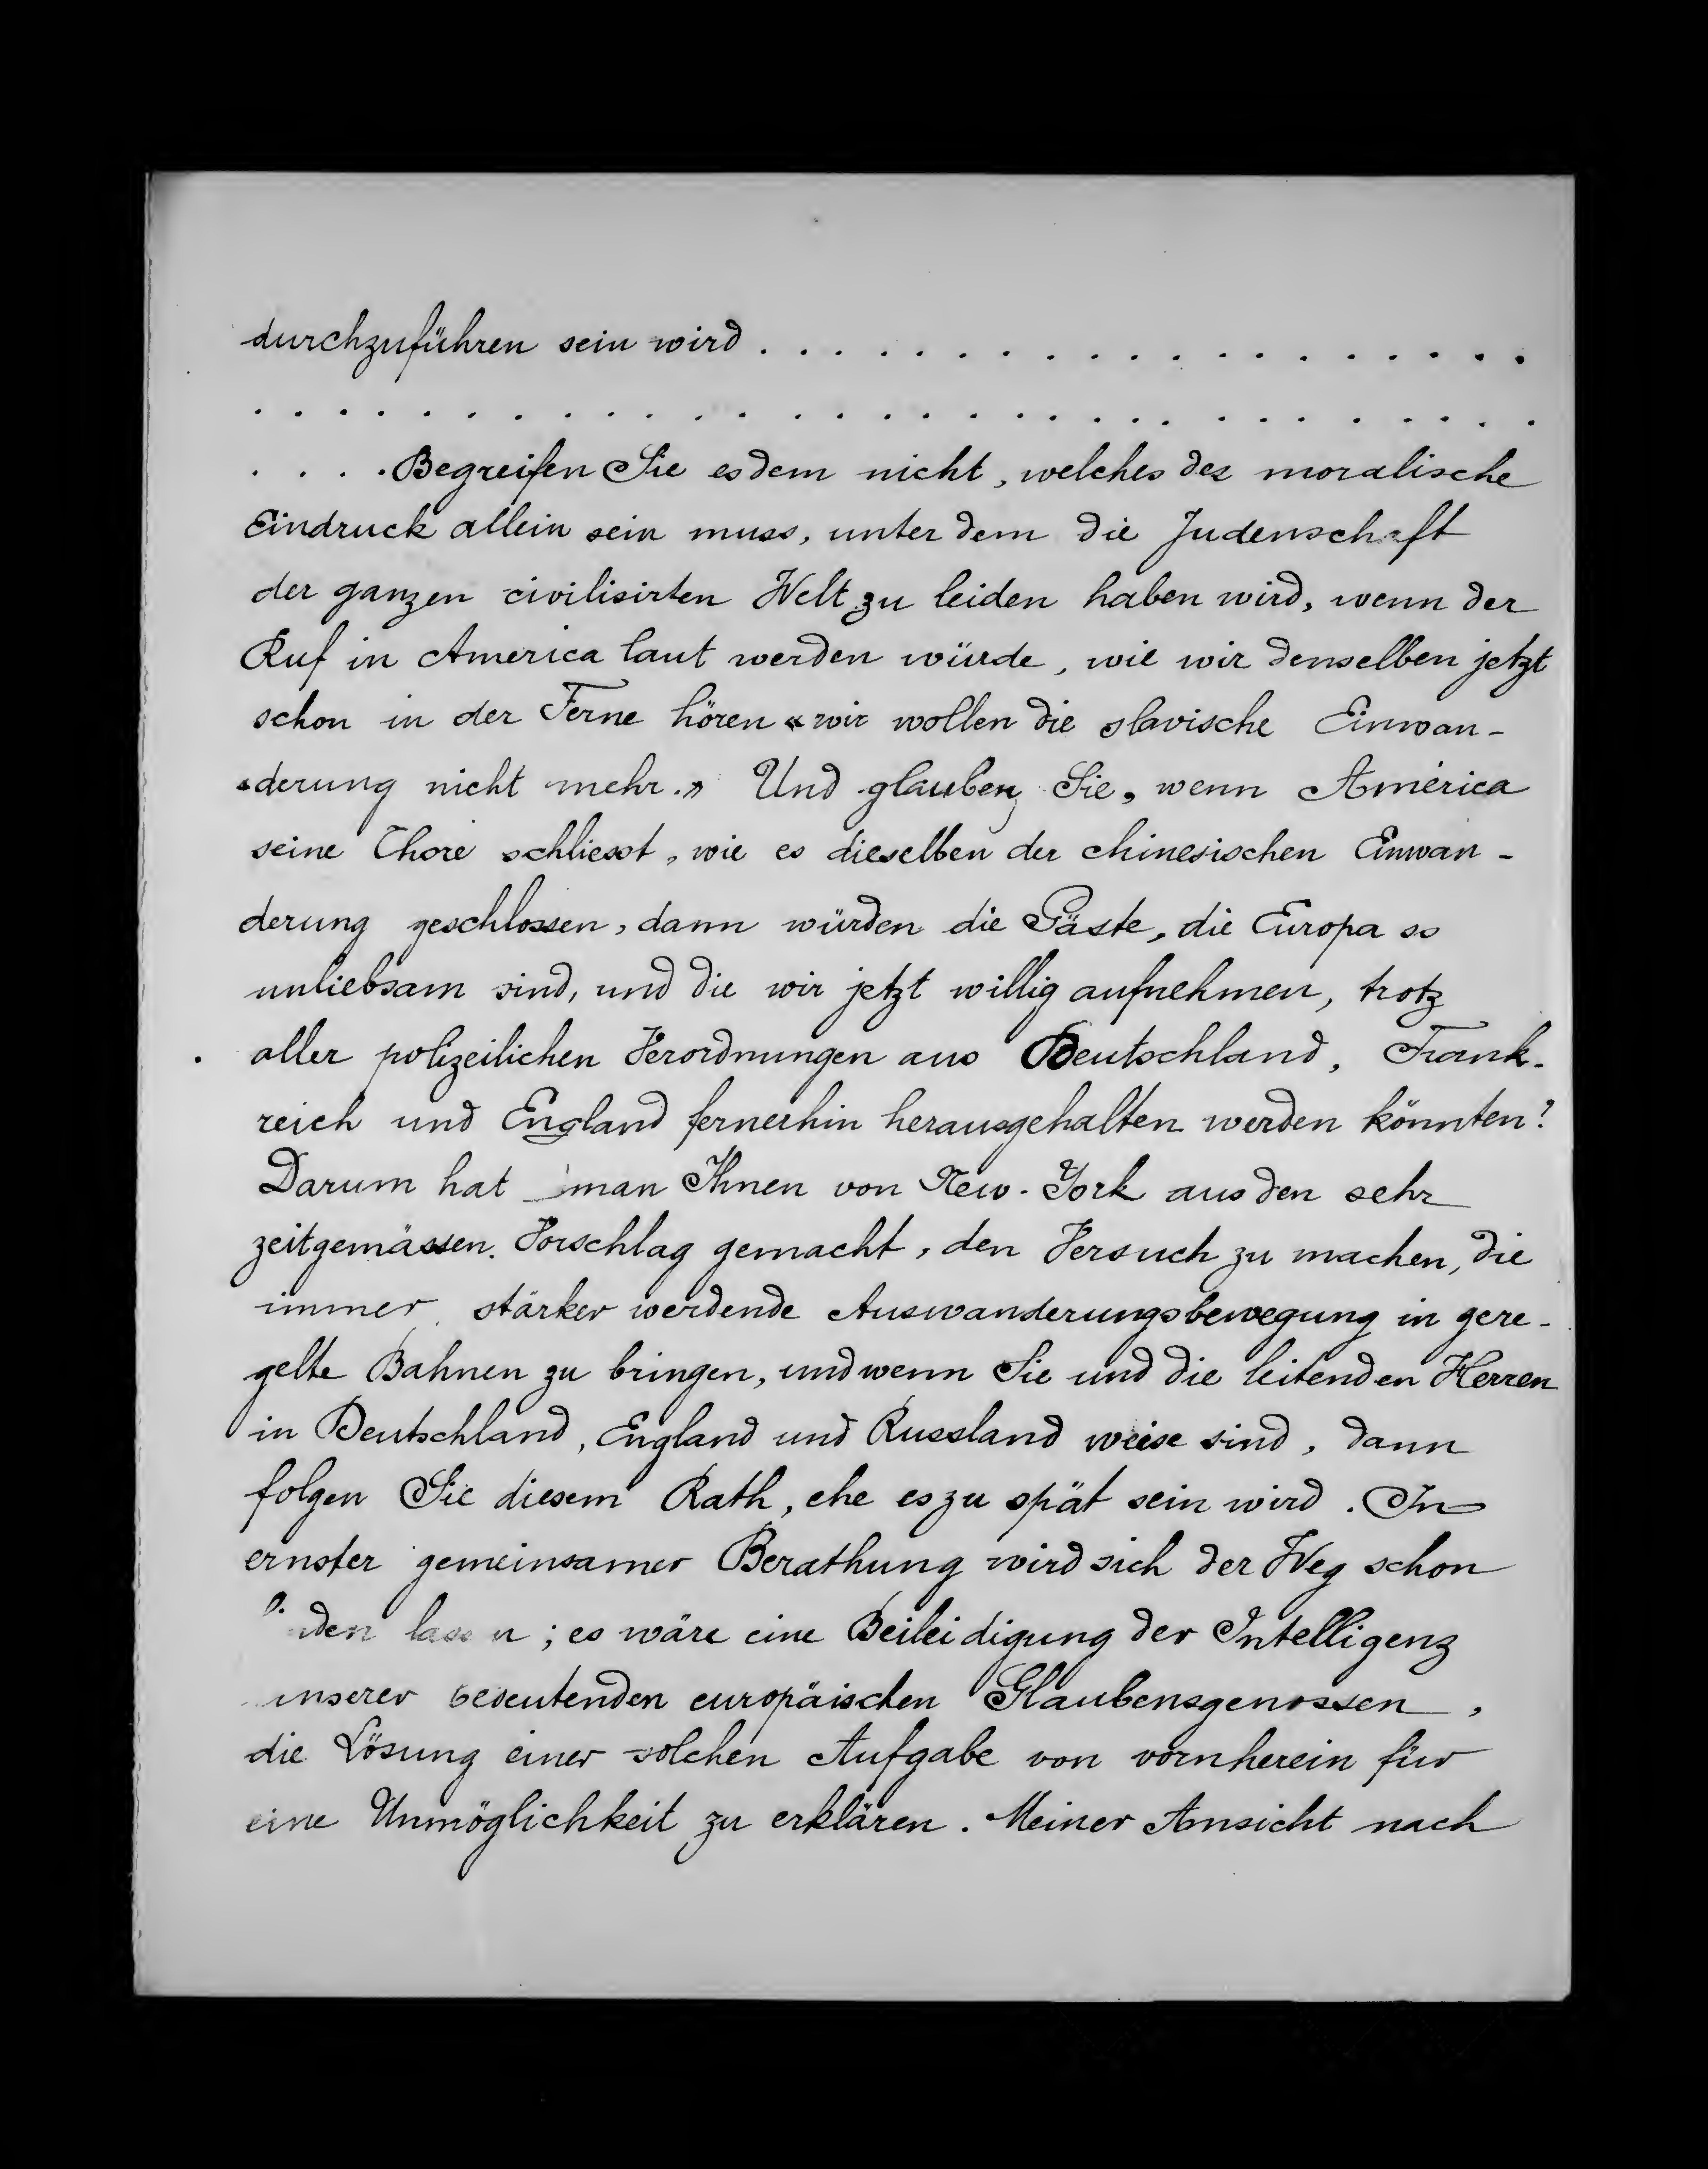 durchzuführen sein wird . . . . . . . . . . . . . . . . . . . .
. . . . . . . . . . . . . . . . . . . . . . . . . . . . . .
. . . . Begreifen Sie es dem nicht, welches der moralische
Eindruck allein sein muss, unter dem die Judenschaft
der ganzen civilisirten Welt zu leiden haben wird, wenn der
Ruf in America laut werden würde, wie wir denselben jetzt
schon in der Ferne hören « wir wollen die slavische Einwan-
derung nicht mehr.» Und glauben Sie, wenn America
seine Thore schliesst, wie es dieselben der chinesischen Einwan-
derung geschlossen, dann würden die Gäste, die Europa so
unliebsam sind, und die wir jetzt willig aufnehmen, trotz
aller polizeilichen Verordnungen aus Deutschland, Frank-
reich und England fernerhin herausgehalten werden könnten?
Darum hat man Ihnen von New-York aus den sehr
zeitgemässen Vorschlag gemacht, den Versuch zu machen, die
immer stärker werdende Auswanderungsbewegung in gere-
gelte Bahnen zu bringen, und wenn Sie und die leitenden Herren
in Deutschland, England und Russland weise sind, dann
folgen Sie diesem Rath, ehe es zu spät sein wird. In
ernster gemeinsamer Berathung wird sich der Weg schon
; es wäre eine Beileidigung der Intelligenz
unserer bedeutenden europäischen Glaubensgenossen,
die Lösung einer solchen Aufgabe von vornherein für
eine Unmöglichkeit zu erklären. Meiner Ansicht nach